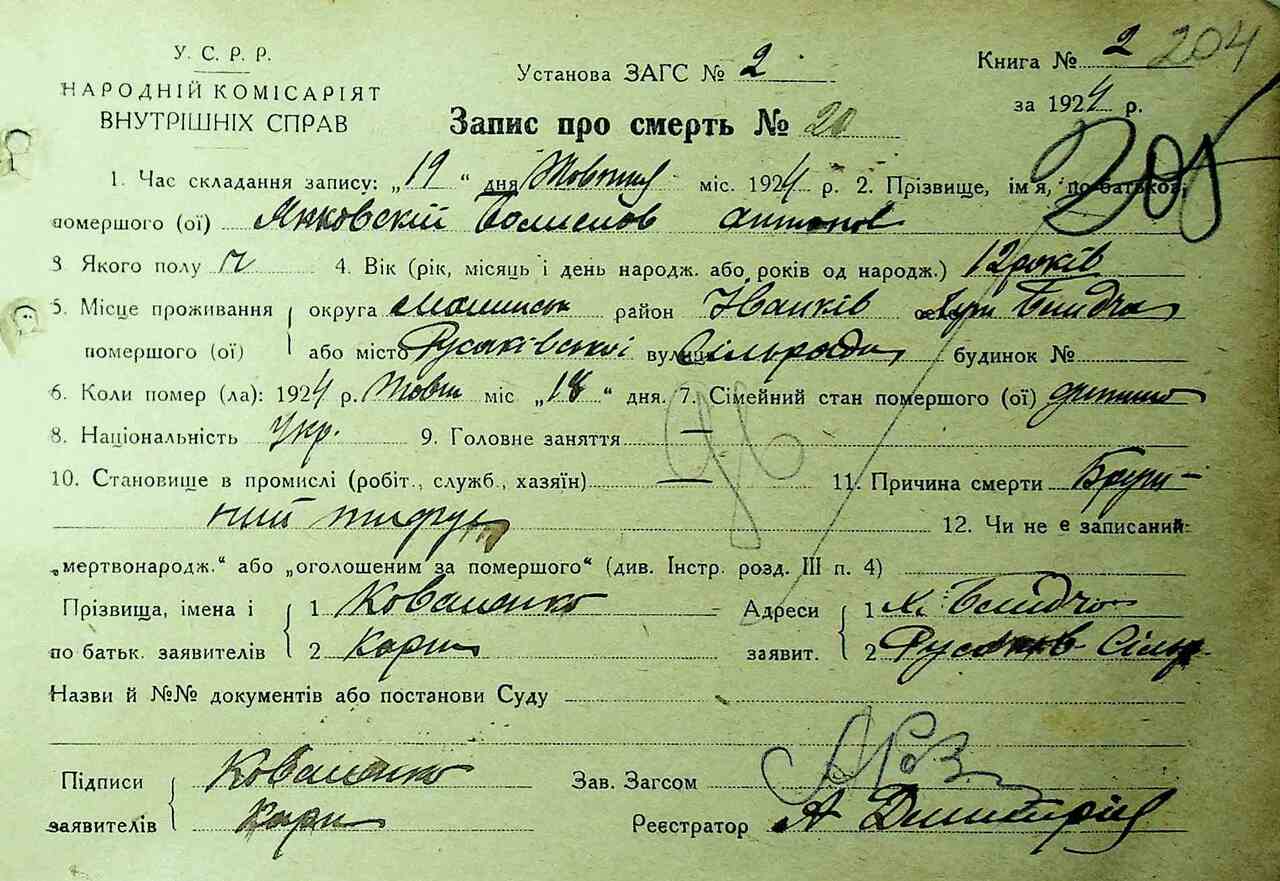 У. С. Р. Р.
НАРОДНІЙ КОМІСАРІЯТ
ВНУТРІШНІХ СПРАВ
Установа ЗАГС № 2
Книга № 2 204
за 1924 р.
Запис про смерть № 20
205
1. Час складання запису: „19“ дня Жовтня міс. 1924 р. 2. Прізвище, ім'я, по-батькові
помершого (ої) Янковскій Болислов Антонов
3 Якого полу ч 4. Вік (рік, місяць і день народж. або років од народж.) 12 років
5. Місце проживання округа район Іванків
помершого (ої) або місто Русаківської вулиця Сільради будинок №
6. Коли помер (ла): 1924 р. Жовт міс „18“ дня. 7. Сімейний стан помершого (ої) дитина
8. Національність Укр. 9. Головне заняття —
10. Становище в промислі (робіт., служб., хазяїн) — 11. Причина смерти Брущ-
ний тифус 12. Чи не є записаний:
„мертвонародж.“ або „оголошеним за помершого“ (див. Інстр. розд. III п. 4)
Прізвища, імена і 1 Коваленко Адреси 1 х.
по батьк. заявителів 2 Карп заявит. 2 Русаків- Сільр.
Назви й №№ документів або постанови Суду
Підписи Коваленко Зав. Загсом
заявителів Карп Реєстратор А